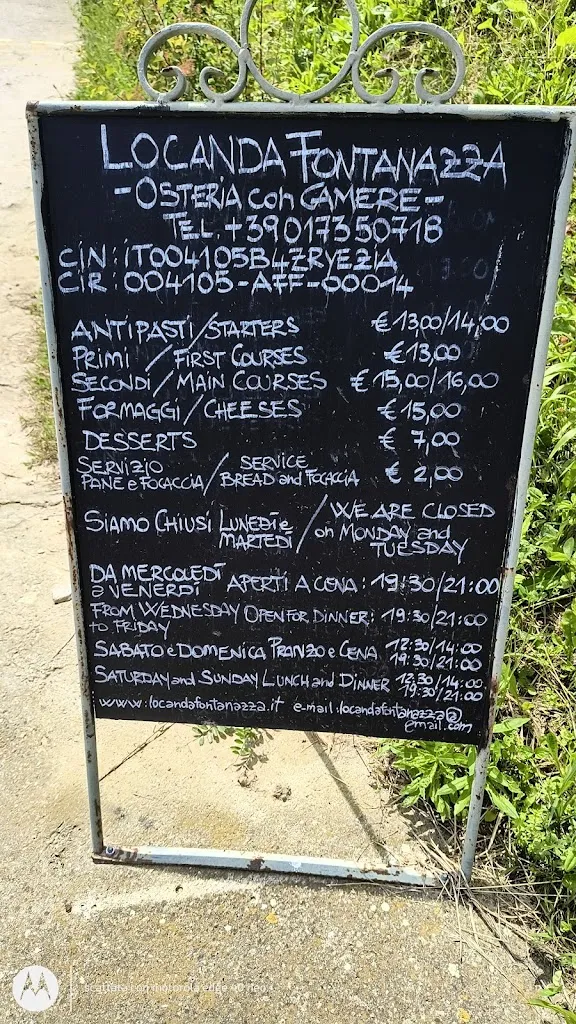 LOCANDA FONTANAZZA
-OSTERIA con CAMERE-
TEL. +39 017350718
CIN: IT004105B4ZRYEZIA
CIR: 004105-AFF-00014
ANTIPASTI/STARTERS € 13,00/14,00
PRIMI / FIRST COURSES € 13,00
SECONDI/MAIN COURSES € 15,00/16,00
FORMAGGI/CHEESES € 15,00
DESSERTS € 7,00
SERVIZIO / SERVICE
PANE e FOCACCIA / BREAD and FOCACCIA € 2,00
SIAMO CHIUSI LUNEDì e MARTEDì / WE ARE CLOSED on MONDAY and TUESDAY
DA MERCOLEDì a VENERDì APERTI A CENA: 19:30/21:00
FROM WEDNESDAY to FRIDAY OPEN FOR DINNER: 19:30/21:00
SABATO e DOMENICA PRANZO e CENA 12:30/14:00 19:30/21:00
SATURDAY and SUNDAY LUNCH and DINNER 12:30/14:00 19:30/21:00
www.locandafontanazza.it e-mail:locandafontanazza@
gmail.com
scattata con motorola edge 40 neo